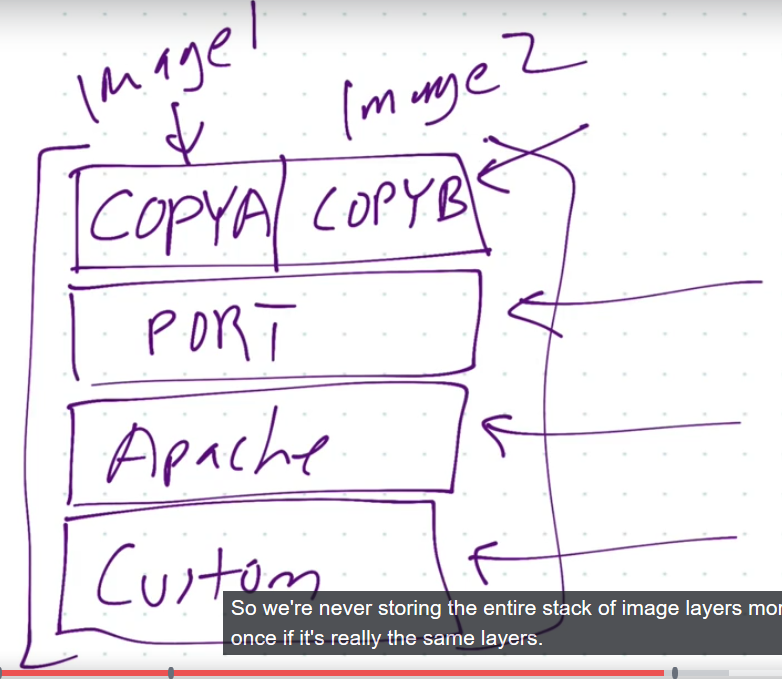 Image1
Image2
COPYA COPYB
PORT
Apache
Custom
So we're never storing the entire stack of image layers mor
once if it's really the same layers.